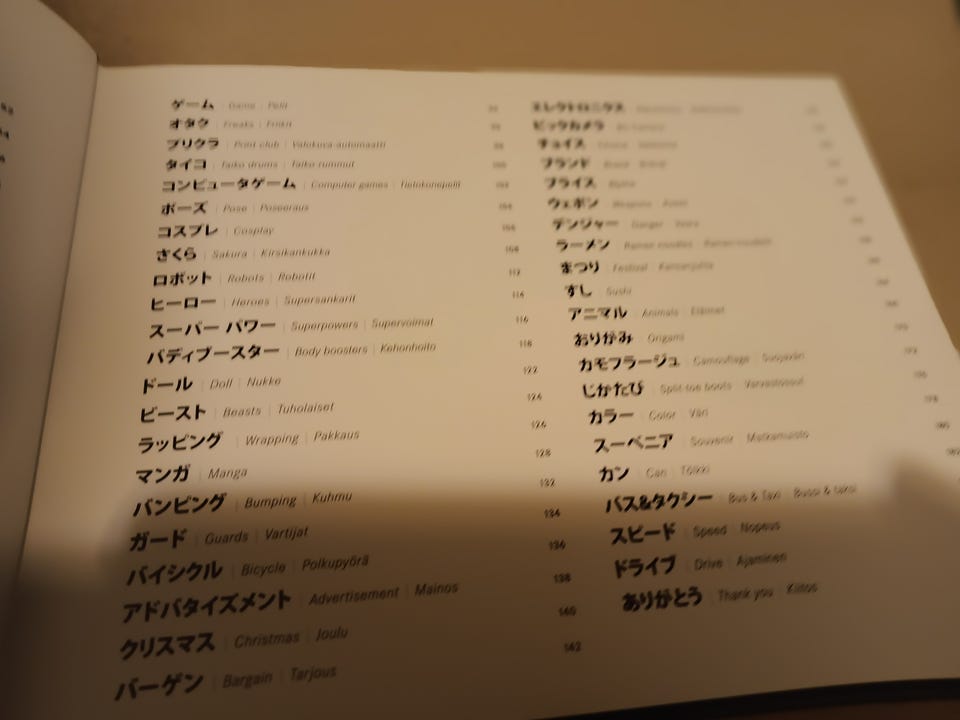 ゲーム | Game | Pelit
オタク | Freaks | Friikit
プリクラ | Print club | Valokuva-automaatti
タイコ | Taiko drums | Taiko-rummut
コンピュータゲーム | Computer games | Tietokonepelit
ポーズ | Pose | Poseeraus
コスプレ | Cosplay
さくら | Sakura | Kirsikankukka 108
ロボット | Robots | Robotit 112
ヒーロー | Heroes | Supersankarit 114
スーパー パワー | Superpowers | Supervoimat 116
バディブースター | Body boosters | Kehonhoito 118
ドール | Doll | Nukke 122
ビースト | Beasts | Tuholaiset 124
ラッピング | Wrapping | Pakkaus 126
マンガ | Manga 128
バンピング | Bumping | Kuhmu 132
ガード | Guards | Vartijat 134
バイシクル | Bicycle | Polkupyörä 136
アドバタイズメント | Advertisement | Mainos 138
クリスマス | Christmas | Joulu 140
バーゲン | Bargain | Tarjous 142
エレクトロニクス
ビックカメラ
チョイス
ブランド | Brand
プライス
ウェポン | Weapons | Aseet
デンジャー | Danger | Vaara
ラーメン | Ramen noodles | Ramen-nuudelit
まつり | Festival | Kansanjuhla
すし | Sushi
アニマル | Animals | Eläimet
おりがみ | Origami
カモフラージュ | Camouflage | Suojaväri
じかたび | Split-toe boots | Varvastossut
カラー | Color | Väri
スーベニア | Souvenir | Matkamuisto
カン | Can | Tölkki
バス&タクシー | Bus & Taxi | Bussi & taksi
スピード | Speed | Nopeus
ドライブ | Drive | Ajaminen
ありがとう | Thank you | Kiitos